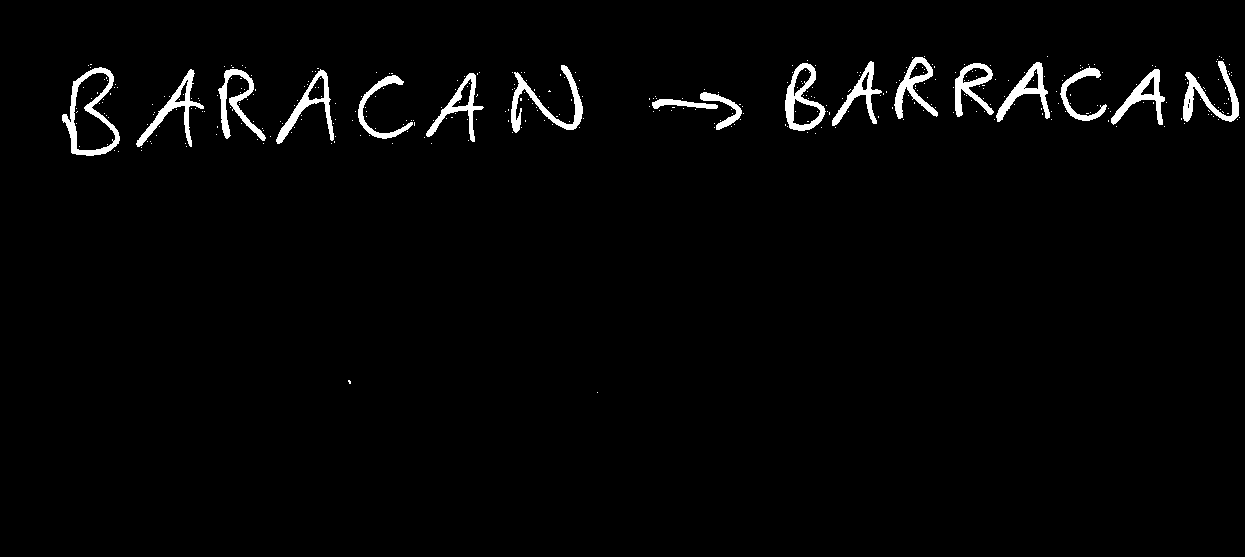 BARACAN → BARRACAN